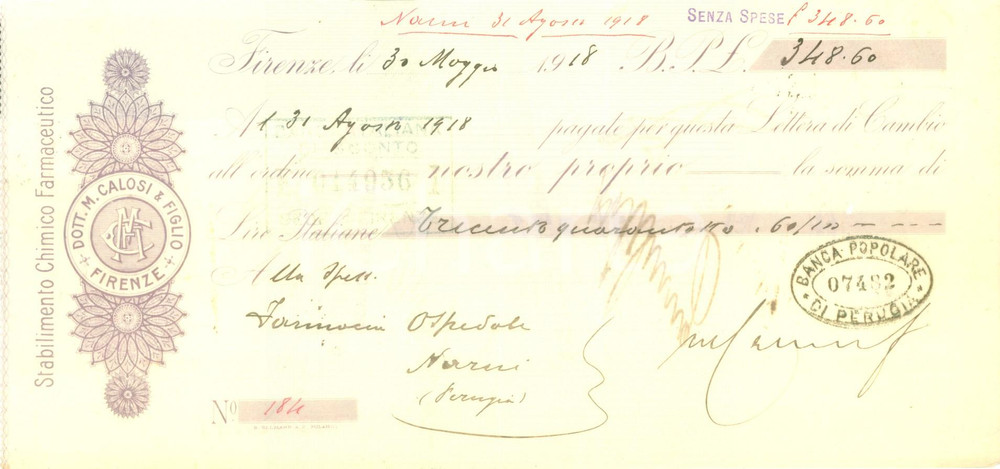 Narni 31 Agosto 1918 SENZA SPESE £ 348.60
Firenze, li 30 Maggio 1918 B.P.L. 348.60
Al 31 Agosto 1918 pagate per questa Lettera di Cambio
all'ordine nostro proprio la somma di
Lire Italiane Trecentoquarantotto . 60/100
Alla Spett.
Farmacia Ospedale
Narni
(Perugia)
No 184
Stabilimento Chimico Farmaceutico
DOTT. M. CALOSI & FIGLIO
FIRENZE
BANCA POPOLARE
07482
DI PERUGIA
014936